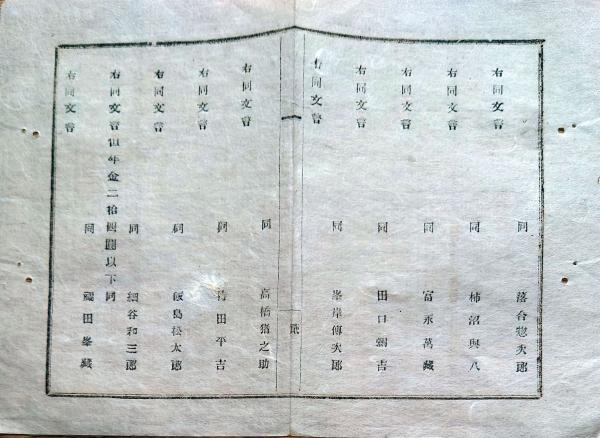 右同文言
同 落合惣次郎
右同文言
同 柿沼與八
右同文言
同 富永萬藏
右同文言
同 田口彌吉
右同文言
同 峯岸傳次郎
右同文言
同 高橋猪之助
右同文言
同 田平吉
右同文言
同 飯島松太郎
右同文言但年金二拾四圓以下同
同 細谷和三郎
右同文言
同 福田峯藏